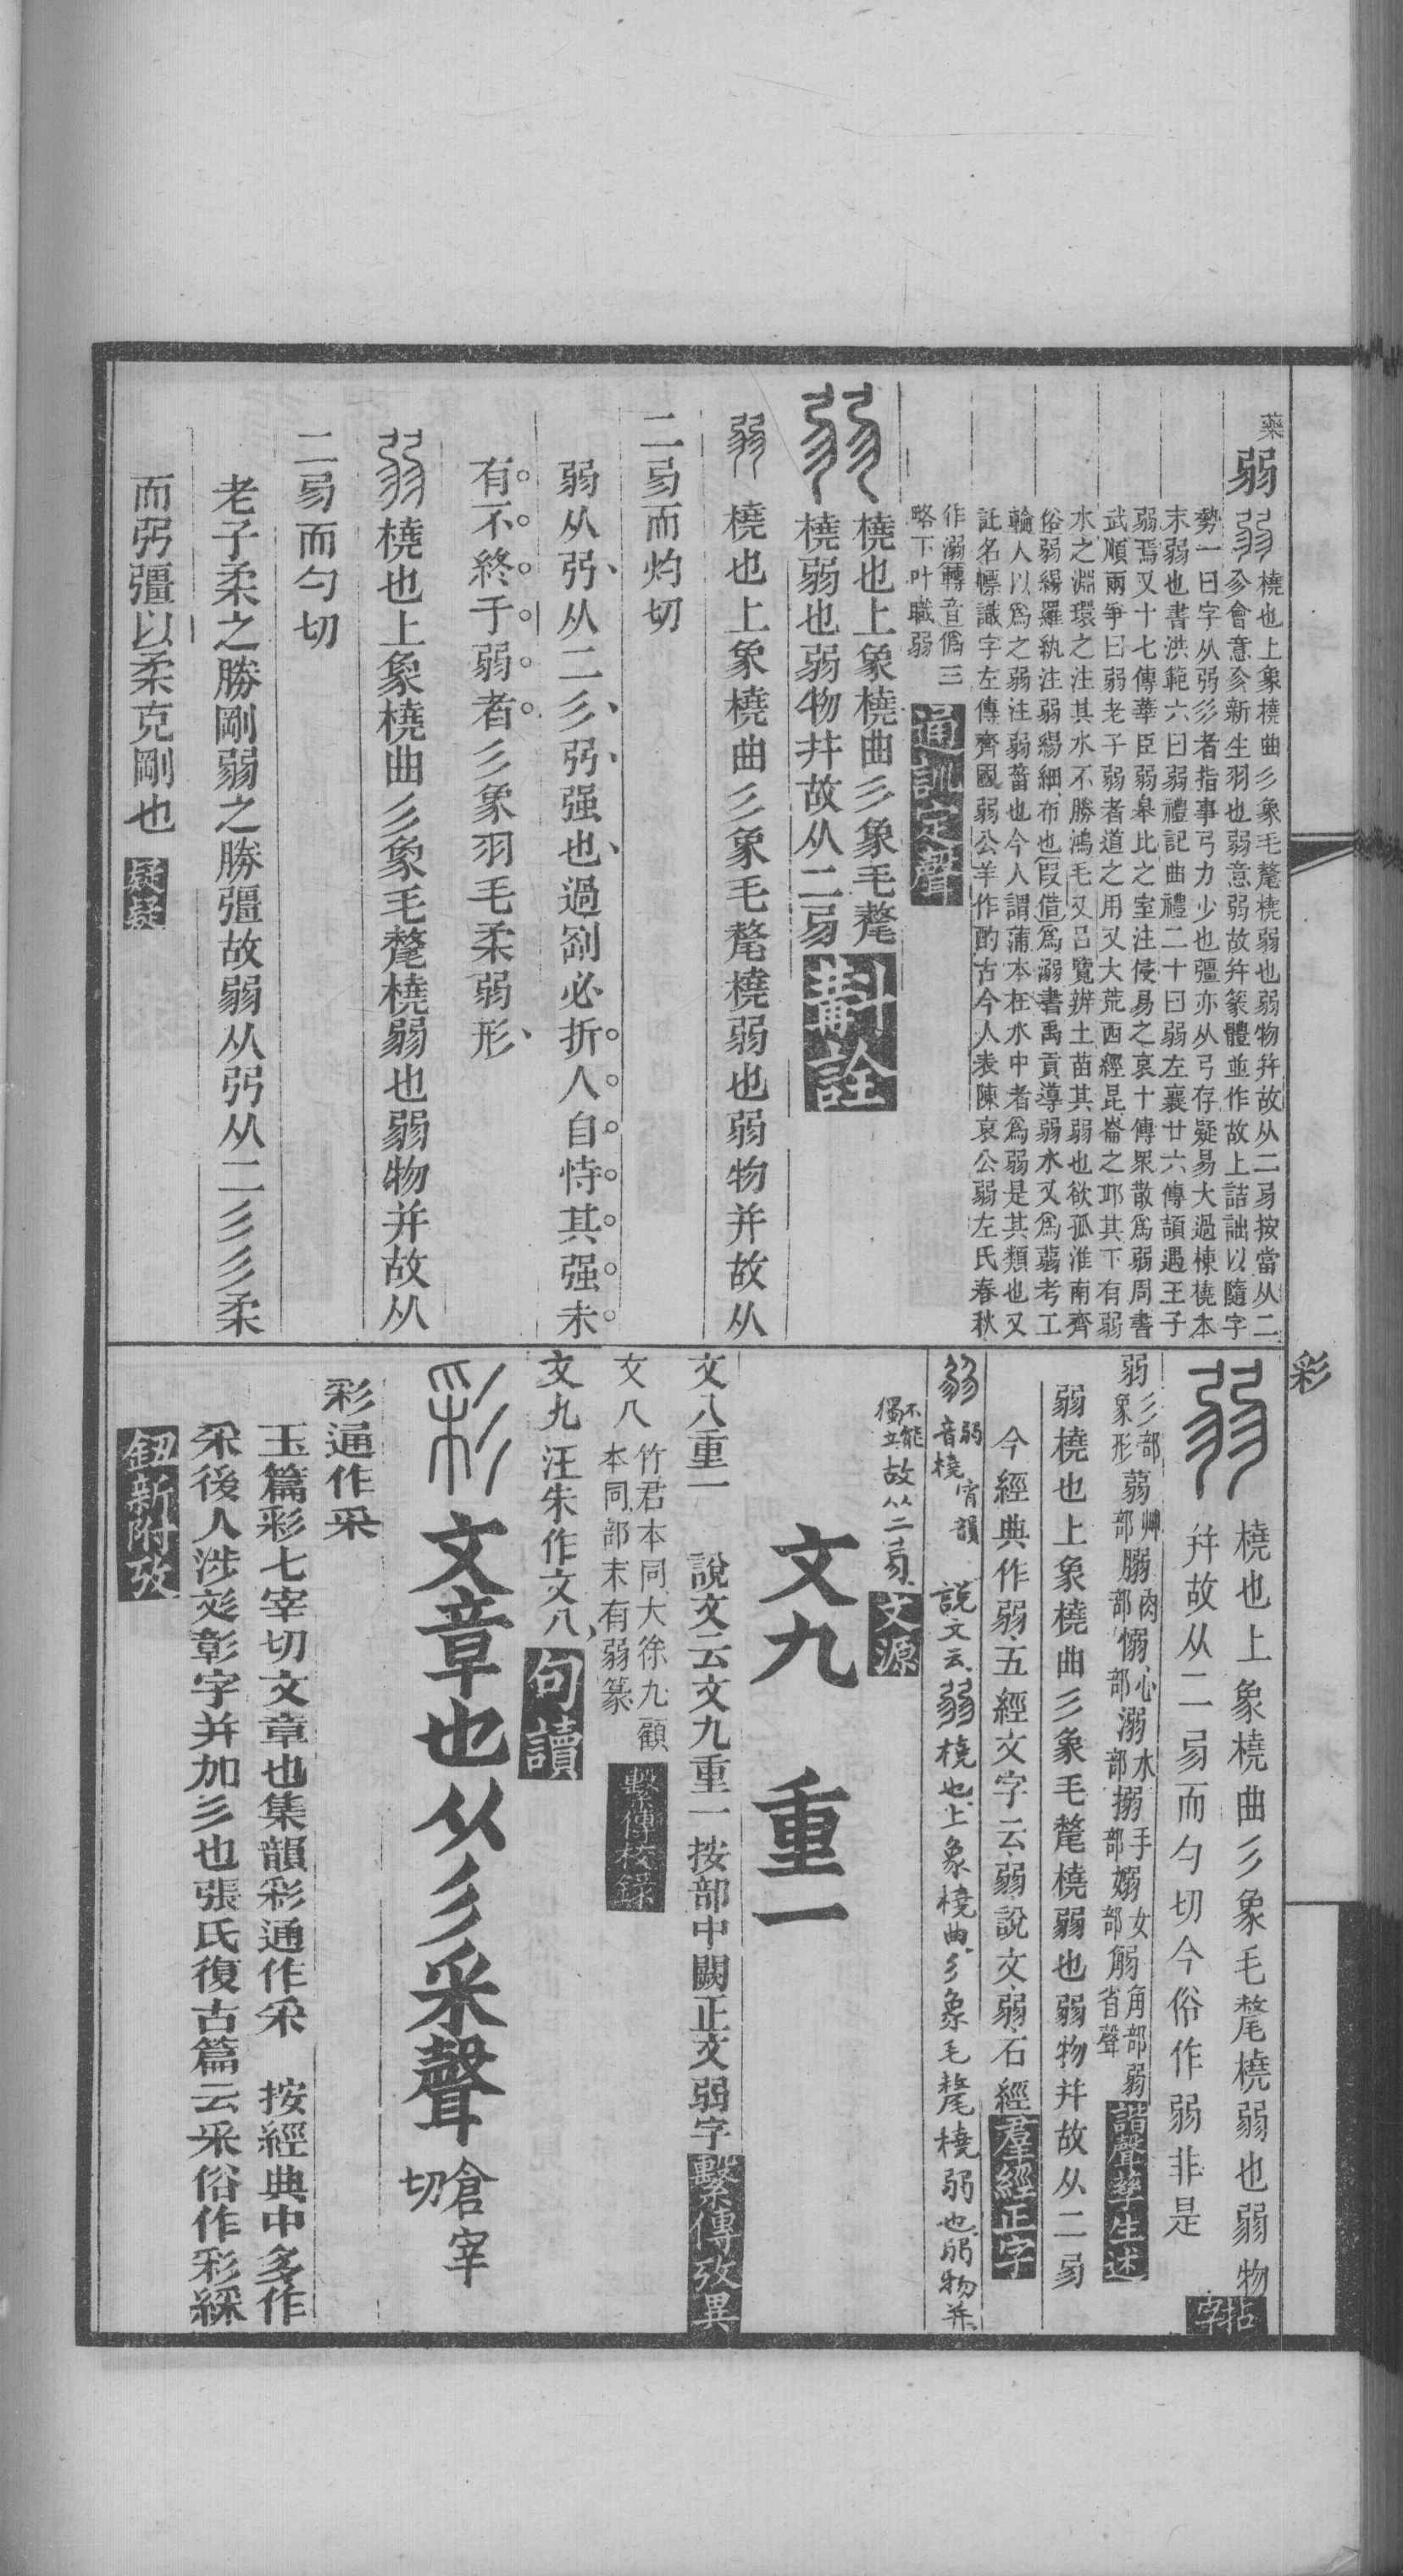 藥
弱
弱橈也上象橈曲彡象毛氂橈弱也弱物幷故从二㢮按當从二
㐱會意㐱新生羽也弱意弱故幷篆體並作故上詰詘以隨字
勢一曰字从弜彡者指事弓力少也彊亦从弓存疑易大過棟橈本
末弱也書洪範六曰弱禮記曲禮二十曰弱左襄廿六傳頡遇王子
弱焉又十七傳華臣弱皋比之室注侵易之哀十傳眾散爲弱周書
武順兩爭曰弱老子弱者道之用又大荒西經昆崙之邱其下有弱
水之淵環之注其水不勝鴻毛又呂覽辨土苗其弱也欲孤淮南齊
俗弱緆羅紈注弱緆細布也叚借爲溺書禹貢導弱水又爲蒻考工
輪人以爲之弱注弱菑也今人謂蒲本在水中者爲弱是其類也又
託名幖識字左傳齊國弱公羊作酌古今人表陳哀公弱左氏春秋
作溺轉音僞三
略下叶職弱
通訓定聲
弱
橈也上象橈曲彡象毛氂
橈弱也弱物幷故从二㢮
斠詮
弱 橈也上象橈曲彡象毛氂橈弱也弱物并故从
二㢮而灼切
弱从弜从二彡弜强也過剛必折人自恃其强未
有不終于弱者彡象羽毛柔弱形
弱橈也上象橈曲彡象毛氂橈弱也弱物并故从
二㢮而勺切
老子柔之勝剛弱之勝彊故弱从弜从二彡彡柔
而弜彊以柔克剛也
疑疑
彩
弱
橈也上象橈曲彡象毛氂橈弱也弱物
幷故从二㢮而勺切今俗作弱非是
拈字
弱彡部象形蒻艸部腸肉部愵心部溺水部搦手部嫋女部𦚢角部弱省聲
諧聲孳生述
弱橈也上象橈曲彡象毛氂橈弱也弱物幷故从二㢮
今經典作弱五經文字云弱說文弱石經
羣經正字
弱弱音橈宵韻 說文云弱橈也上象橈曲彡象毛氂橈弱也弱物并
不能獨立故从二㢮
文源
文九 重一
文八重一 說文云文九重一按部中闕正文弱字
繫傳攷異
文八 竹君本同大徐九顧
本同部末有弱篆
繫傳校錄
文九 汪朱作文八
句讀
彩 文章也从彡采聲 倉宰切
彩通作采
玉篇彩七宰切文章也集韻彩通作采 按經典中多作
采後人涉彣彰字并加彡也張氏復古篇云采俗作彩綵
鈕新附攷